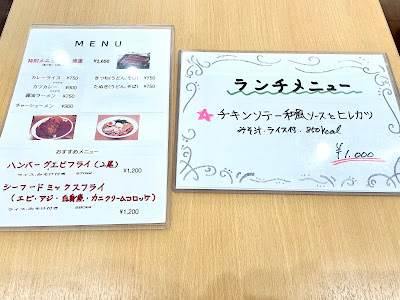 MENU
特別メニュー 鰻重 ¥2,650
カレーライス ¥750
カツカレー ¥900
醤油ラーメン ¥750
チャーシューメン ¥900
きつね(うどん、そば) ¥750
たぬき(うどん、そば) ¥750
おすすめメニュー
ハンバーグエビフライ(2尾)
ライス、みそ汁付き
¥1,200
シーフードミックスフライ
(エビ・アジ・白身魚・カニクリームコロッケ)
ライス、みそ汁付き
¥1,200
ランチメニュー
☆チキンソテー和風ソースとヒレカツ
みそ汁・ライス付 850kcal
¥1,000